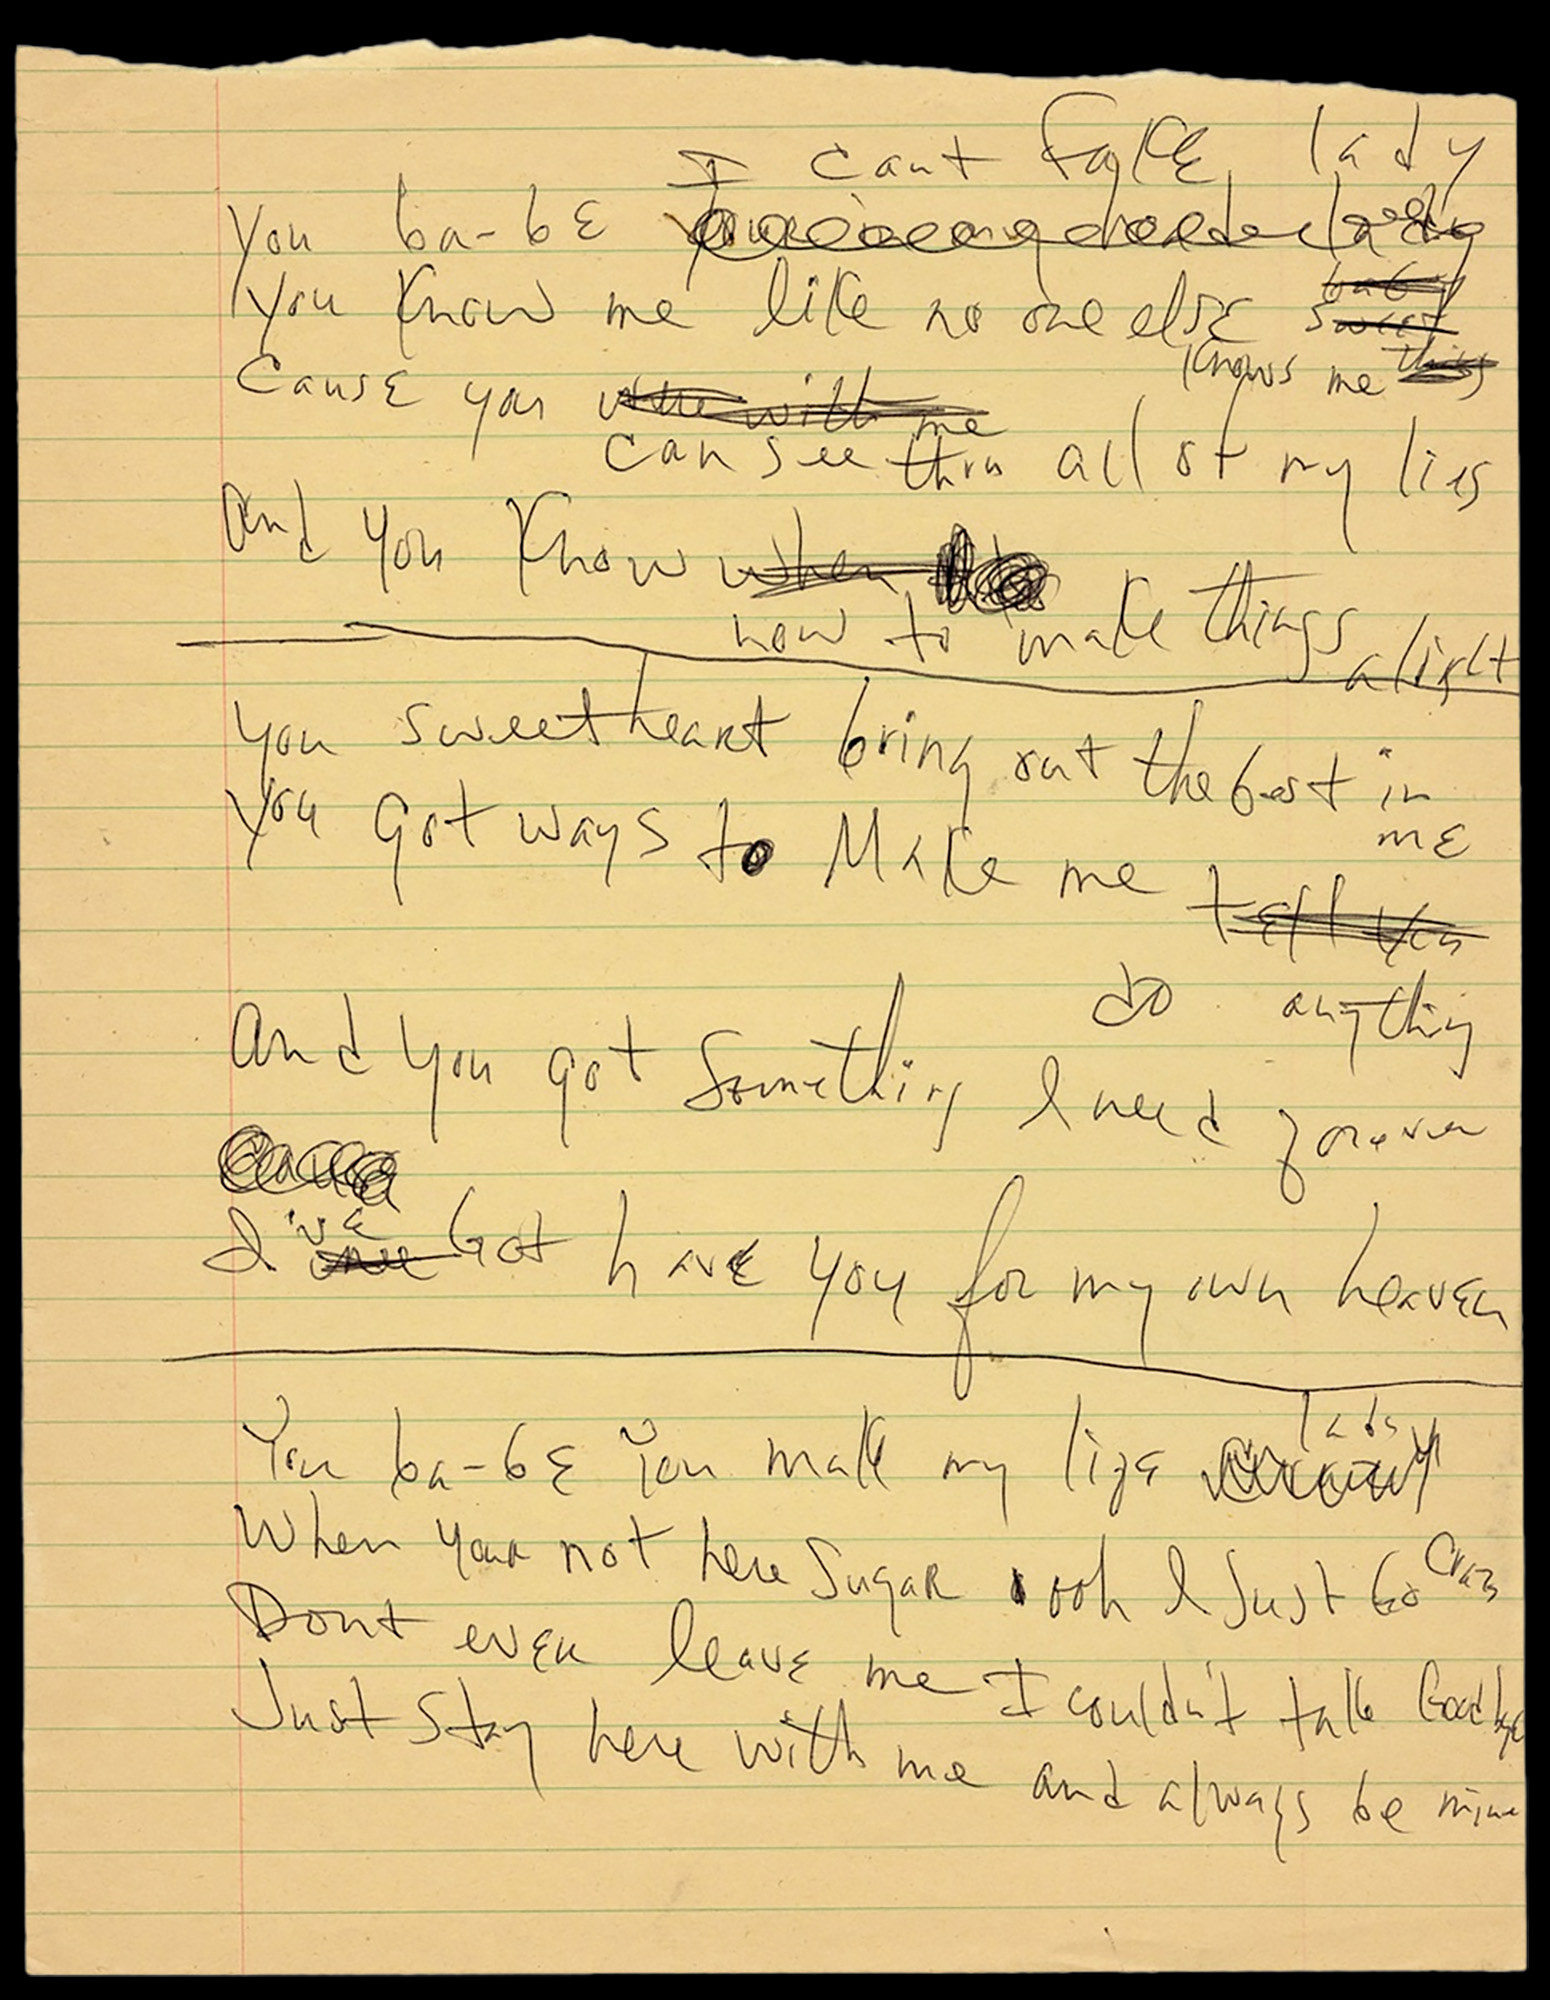 I cant Fake lady
You ba-bE
You Know me like no one elsE baby sweet
Knows me things
Cause you with me
can see thru all of my lies
And you Know when
how to make things alright
You sweetheart bring out the best in
mE
You Got ways to Make me tell you
do anything
And you got Something I need forever
Cause
I'vE Got havE you for my own heaven
lady
You ba-bE You makE my lifE
When your not here Sugar ooh I Just Go Crazy
Dont even leave me I couldn't take Goodbye
Just stay here with me and always be mine